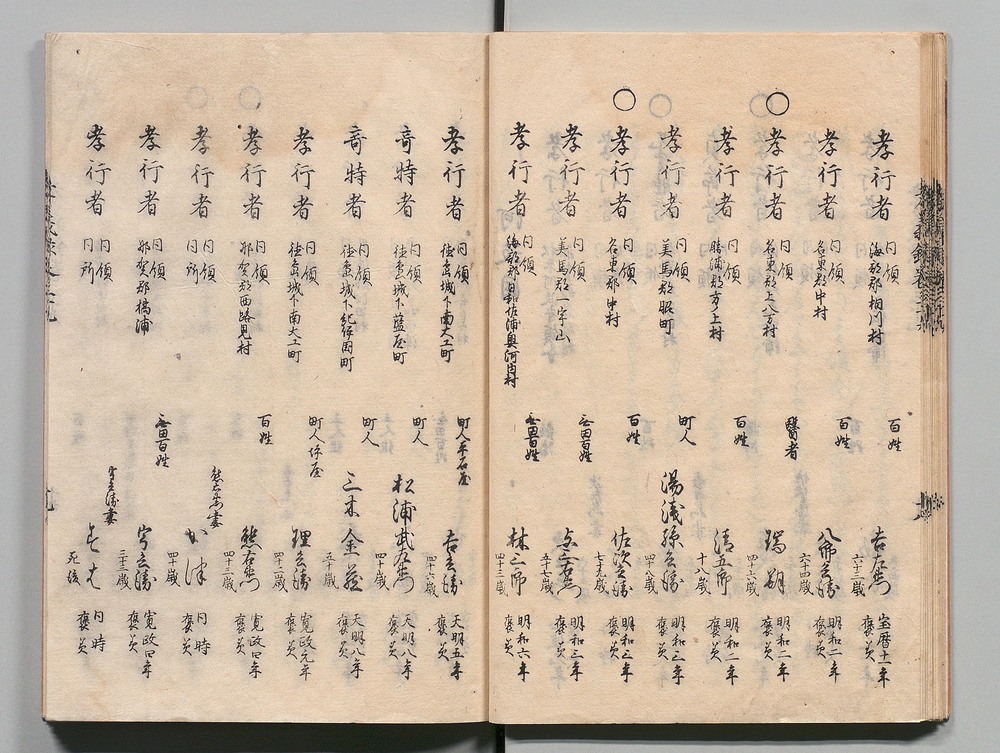 孝行者 同領 海部郡相川村 百姓 吉左衛門 六十三歳 宝暦十一年 褒美
孝行者 同領 名東郡中村 百姓 八郎兵衛 六十四歳 明和二年 褒美
○ 孝行者 同領 名東郡上八万村 醫者 瑞朔 四十六歳 明和二年 褒美
孝行者 同領 勝浦郡方ノ上村 百姓 清五郎 十八歳 明和二年 褒美
孝行者 同領 美馬郡脇町 町人 湯浅孫兵衛 四十八歳 明和三年 褒美
○ 孝行者 同領 名東郡中村 百姓 佐次兵衛 七十九歳 明和三年 褒美
孝行者 同領 美馬郡一宇山 無田百姓 与三右衛門 五十七歳 明和三年 褒美
孝行者 同領 海部郡日和佐浦奥河内村 無田百姓 林三郎 四十三歳 明和六年 褒美
孝行者 同領 徳島城下南大工町 町人平石屋 吉兵衛 四十六歳 天明五年 褒美
奇特者 同領 徳島城下藍屋町 町人 松浦武左衛門 四十歳 天明八年 褒美
奇特者 同領 徳島城下紀伊国町 町人 三木金蔵 五十歳 天明八年 褒美
孝行者 同領 徳島城下南大工町 町人伊屋 理兵衛 四十二歳 寛政元年 褒美
孝行者 同領 那賀郡西路見村 百姓 熊右衛門 四十三歳 寛政四年 褒美
孝行者 同領 同所 熊右衛門妻 かつ 四十歳 同時 褒美
孝行者 同領 那賀郡橘浦 無田百姓 宇兵衛 三十三歳 寛政四年 褒美
孝行者 同領 同所 宇兵衛妻 死後 同時 褒美